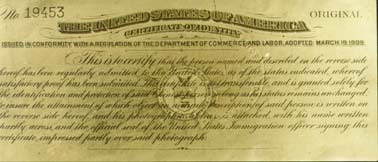 No. 19453 ORIGINAL
THE UNITED STATES OF AMERICA
CERTIFICATE OF IDENTITY
ISSUED IN CONFORMITY WITH A REGULATION OF THE DEPARTMENT OF COMMERCE AND LABOR, ADOPTED MARCH 19, 1909.
This is to certify that the person named and described on the reverse side
hereof has been regularly admitted to the United States, as of the status indicated, whereof
satisfactory proof has been submitted. This certificate is not transferable, and is granted solely for
the identification and protection of said Chinese person so long as his status remains unchanged;
to insure the attainment of which object an accurate description of said person is written on
the reverse side hereof, and his photographic likeness is attached, with his name written
partly across, and the official seal of the United States Immigration officer signing this
certificate, impressed partly over said photograph.